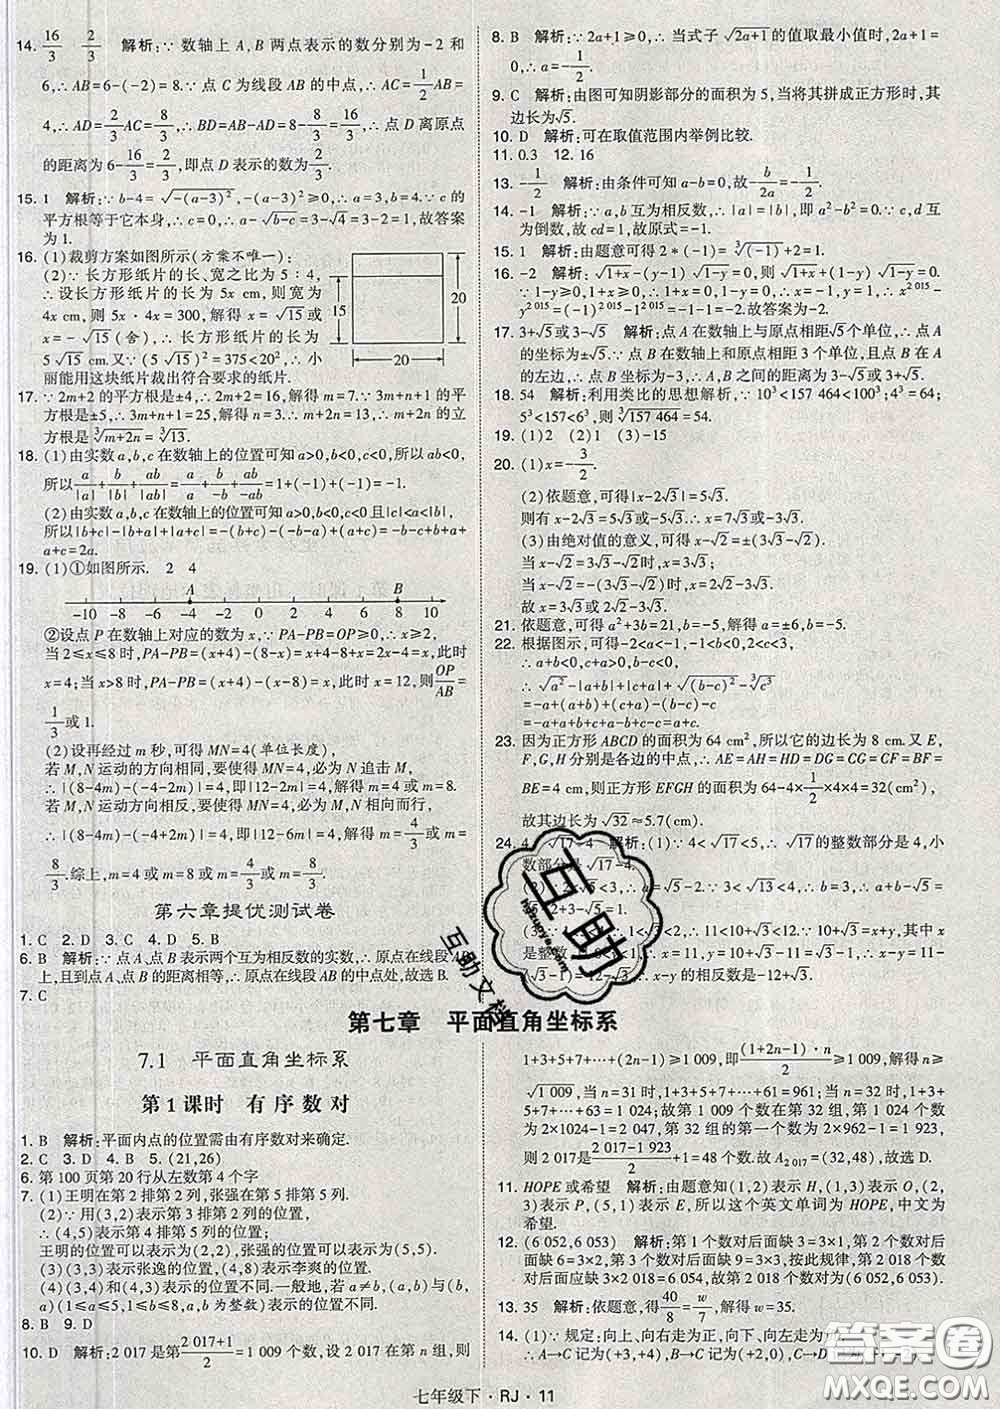 14. 16/3 2/3 解析:∵ 数轴上 A,B 两点表示的数分别为-2 和
6,∴ AB=6-(-2)=8.∵ 点 C 为线段 AB 的中点,∴ AC=1/2AB=
4,∴ AD=2/3AC=8/3,∴ BD=AB-AD=8-8/3=16/3,∴ 点 D 离原点
的距离为 6-16/3=2/3,即点 D 表示的数为2/3.
15. 1 解析:∵ b-4=√-(a-3)²,-(a-3)²≥0,∴ a=3,b=4.∵ c 的
平方根等于它本身,∴ c=0,∴ a-√b-c=3-√4=3-2=1,故答案
为 1.
16. (1)裁剪方案如图所示(方案不唯一):
(2)∵ 长方形纸片的长、宽之比为 5∶4,
∴ 设长方形纸片的长为 5x cm,则宽为
4x cm,则 5x·4x=300,解得 x=√15 或
x=-√15(舍),∴ 长方形纸片的长为
5√15 cm.又∵ (5√15)²=375<20²,∴ 小
丽能用这块纸片裁出符合要求的纸片.
15
20
20
17. ∵ 2m+2 的平方根是±4,∴ 2m+2=16,解得 m=7.∵ 3m+n+1 的平
方根是±5,∴ 3m+n+1=25,解得 n=3.∴ m+2n=13,∴ m+2n 的立
方根是∛m+2n=∛13.
18. (1)由实数 a,b,c 在数轴上的位置可知 a>0,b<0,c<0.所以 ab<0,
所以a/|a|+b/|b|+ab/|ab|=a/a+b/-b+ab/-ab=1+(-1)+(-1)=-1.
(2)由实数 a,b,c 在数轴上的位置可知 a>0,b<0,c<0且|c|<|a|<|b|,
所以|b+c|-|b-a|+|a+c|=-(b+c)-(-b+a)+(a+c)=-b-c+b+a+
a+c=2a.
19. (1)①如图所示. 2 4
A B
-10 -8 -6 -4 -2 0 2 4 6 8 10
②设点 P 在数轴上对应的数为 x,∵ PA-PB=OP≥0,∴ x≥2,
当 2≤x≤8 时,PA-PB=(x+4)-(8-x)=x+4-8+x=2x-4=x,此时
x=4;当 x>8 时,PA-PB=(x+4)-(x-8)=x,此时 x=12,则OP/AB=
1/3或 1.
(2)设再经过 m 秒,可得 MN=4(单位长度),
若 M,N 运动的方向相同,要使得 MN=4,必为 N 追击 M,
∴ |(8-4m)-(-4-2m)|=4,即|12-2m|=4,解得 m=4 或 m=8;
若 M,N 运动方向相反,要使得 MN=4,必为 M,N 相向而行,
∴ |(8-4m)-(-4+2m)|=4,即|12-6m|=4,解得 m=4/3或 m=
8/3.综上,m=4 或 m=8 或 m=4/3或 m=8/3.
第六章提优测试卷
1. C 2. D 3. C 4. D 5. B
6. B 解析:∵ 点 A、点 B 表示两个互为相反数的实数,∴ 原点在线段 AB
上,且到点 A、点 B 的距离相等,∴ 原点在线段 AB 的中点处,故选 B.
7. C
8. B 解析:∵ 2a+1≥0,∴ 当式子√2a+1的值取最小值时,2a+1=
0,∴ a=-1/2.
9. C 解析:由图可知阴影部分的面积为 5,当将其拼成正方形时,其
边长为√5.
10. D 解析:可在取值范围内举例比较.
11. 0.3 12. 16
13. -1/2 解析:由条件可知 a-b=0,故-b/2a=-1/2.
14. -1 解析:∵ a,b 互为相反数,∴ |a|=|b|,故 a²-b²=0.∵ c,d 互
为倒数,故 cd=1,故原式=-1.
15. 1 解析:由题意可得 2*(-1)=∛(-1)+2=1.
16. -2 解析:∵ √1+x-(y-1)√1-y=0,则√1+x+(1-y)√1-y=0.
∵ 1-y≥0,∴ 1+x=0,1-y=0,∴ x=-1,y=1,∴ x^2 015-
y^2 015=(-1)^2 015-1^2 015=-1-1=-2.故答案为-2.
17. 3+√5或 3-√5 解析:点 A 在数轴上与原点相距√5个单位,∴ 点 A
的坐标为±√5.∵ 点 B 在数轴上和原点相距 3 个单位,且点 B 在 A
的左边,∴ 点 B 坐标为-3,∴ A,B 之间的距离为 3-√5或 3+√5.
18. 54 解析:利用类比的思想解析.∵ 10³<157 464<100³;4³=64;
5³<157<6³,∴ ∛157 464=54.
19. (1)2 (2)1 (3)-15
20. (1)x=-3/2.
(2)依题意,可得|x-2√3|=5√3.
则有 x-2√3=5√3或 x-2√3=-5√3.故 x=7√3或 x=-3√3.
(3)由绝对值的意义,可得 x-√2=±(3√3-√2).
当 x-√2=3√3-√2时,x=3√3.
当 x-√2=-(3√3-√2)时,x=-3√3+2√2.
故 x=3√3或 x=-3√3+2√2.
21. 依题意,可得 a²+3b=21,b=-5,解得 a=±6,b=-5.
22. 根据图示,可得-2<a<-1,-1<b<0,2<c<3,
∴ a+b<0,c+a>0,b-c<0,
∴ √a²-|a+b|+|c+a|+√(b-c)²-∛c³
=-a+(a+b)+(c+a)-(b-c)-c
=-a+a+b+c+a-b+c-c=c.
23. 因为正方形 ABCD 的面积为 64 cm²,所以它的边长为 8 cm.又 E,
F,G,H 分别是各边的中点,∴ AE=AH=HD=DG=CG=CF=BF=
BE=4 cm,则正方形 EFGH 的面积为 64-4×1/2×4×4=32(cm²),
故其边长为√32≈5.7(cm).
24. 4 √17-4 解析:(1)∵ 4<√17<5,∴ √17的整数部分是 4,小
数部分是√17-4.
第七章 平面直角坐标系
7.1 平面直角坐标系
第 1 课时 有序数对
1. B 解析:平面内点的位置需由有序数对来确定.
2. C 3. D 4. B 5. (21,26)
6. 第 100 页第 20 行从左数第 4 个字
7. (1)王明在第 2 排第 2 列,张强在第 5 排第 5 列.
(2)∵ 用(3,2)表示第 3 排第 2 列的位置,
∴ (4,5)表示第 4 排第 5 列的位置;
王明的位置可以表示为(2,2),张强的位置可以表示为(5,5).
(3)(3,3)表示张逸的位置,(4,3)表示李爽的位置.
(4)(3,4)和(4,3)表示的位置不相同.一般地,若 a≠b,(a,b)与(b,
a)(1≤a≤5,1≤b≤5,a,b 为整数)表示的位置不相同.
8. B 9. D
10. D 解析:2 017 是第2 017+1/2=1 009 个数,设 2 017 在第 n 组,则
1+3+5+7+…+(2n-1)≥1 009,即(1+2n-1)·n/2≥1 009,解得 n≥
√1 009.当 n=31 时,1+3+5+7+…+61=961;当 n=32 时,1+3+
5+7+…+63=1 024;故第 1 009 个数在第 32 组.第 1 024 个数为
2×1 024-1=2 047,第 32 组的第一个数为 2×962-1=1 923,
则 2 017 是2 017-1 923/2+1=48 个数.故 A₂ ₀₁₇=(32,48),故选 D.
11. HOPE 或希望 解析:由题意知(1,2)表示 H,(1,3)表示 O,(2,
3)表示 P,(5,1)表示 E,所以这个英文单词为 HOPE,中文为
希望.
12. (6 052,6 053) 解析:第 1 个数对后面缺 3=3×1,第 2 个数对后
面缺 6=3×2,第 3 个数对后面缺 9=3×3,按此规律,第 2 017 个数
对后面缺 3×2 017=6 051,则第 2 018 个数对为(6 052,6 053).
13. 35 解析:依题意,得40/8=w/7,解得 w=35.
14. (1)∵ 规定:向上、向右走为正,向下、向左走为负,
∴ A→C 记为(+3,+4),B→C 记为(+2,0)
七年级下·RJ·11
互助
互助文档
答案圈
MXQE.COM